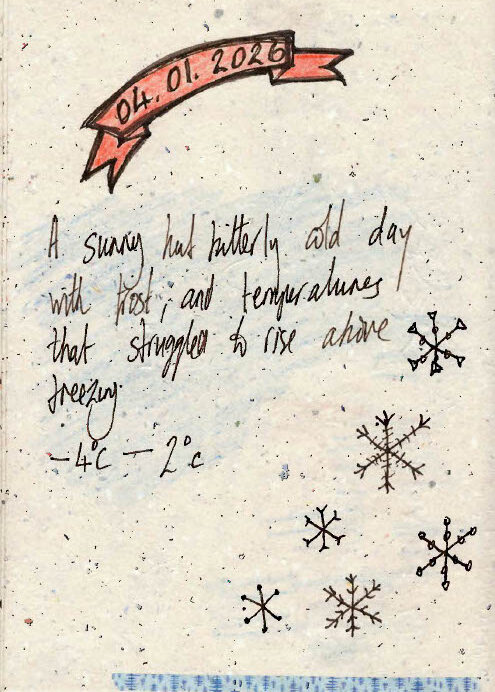 04.01.2026
A sunny but bitterly cold day
with frost, and temperatures
that struggled to rise above
freezing.
-4°c - 2°c